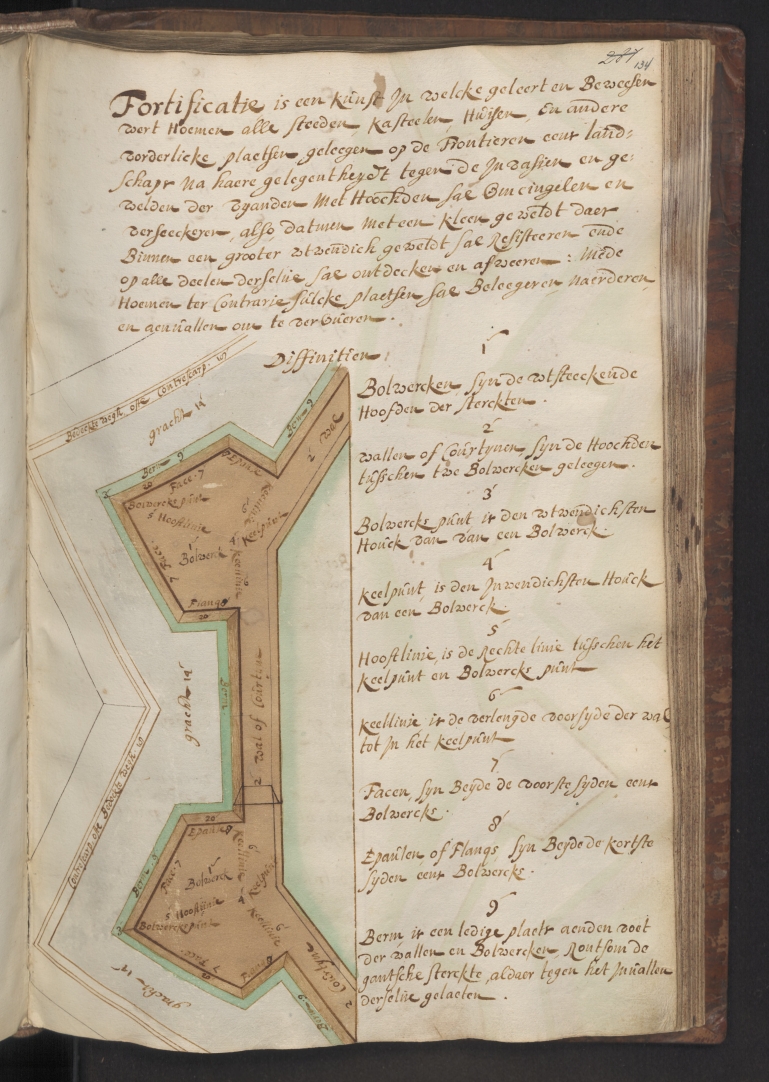 134
Fortificatie is een Kunst In welcke geleert en Beweesen
wert Hoemen alle steeden, Kasteelen, Huisen, En andere
vorderlicke plaetsen geleegen op de Frontieren eenr land=
schapr Na haere gelegentheydt tegen de Invasien en ge=
welden der vyanden Met Hoochden sal Omcingelen en
verseeckeren, also datmen Met een kleen geweldt daer
Binnen een grooter wtwendich geweldt sal Resisteeren ende
op alle deelen derselve sal ontdecken en afweeren : Mede
Hoemen ter Contrarie sulcke plaetsen sal Beleegeren Naerderen,
en aenvallen om te verOveren.
Diffinitien
1
Bolwercken, syn de wtsteeckende
Hoofden der sterckten.
2
wallen of Courtynen, syn de Hoochden
tusschen twe Bolwercken geleegen.
3
Bolwercks punt ir den wtwendichsten
Houck van van een Bolwerck.
4
keelpunt, is den Inwendichsten Houck
van een Bolwerck.
5
Hooftlinie, is de Rechte linie tusschen het
keelpunt en Bolwercks punt
6
keellinie ir de verlengde voorsyde der wal
tot In het keelpunt
7
Facen, syn Beyde de voorste syden, eenr
Bolwercks.
8
Epaulen of Flangs, syn Beyde de kortste
syden eenr Bolwercks.
9
Berm, ir een ledige plaetr aenden voet
der wallen en Bolwercken, Rontsom de
gantsche sterckte, aldaer tegen het Invallen
derselve gelaeten.
gracht
Berm 9
Berm 9
2 wal
Face 7
Epaule
Bolwercks punt
5 Hooftlinie
keellinie
6
keelpunt
4
1
Bolwerck
keellinie
Face
7
Flang
gracht
2 wal of Courten
Epaul
Berm 9
Face 7
1
Bolwerck
keellinie
6
keelpunt
4
5 Hooftlinie
3
Bolwercks punt
keellinie
6
Face
7
Flang
Courtyne
2
Berm 9
gracht